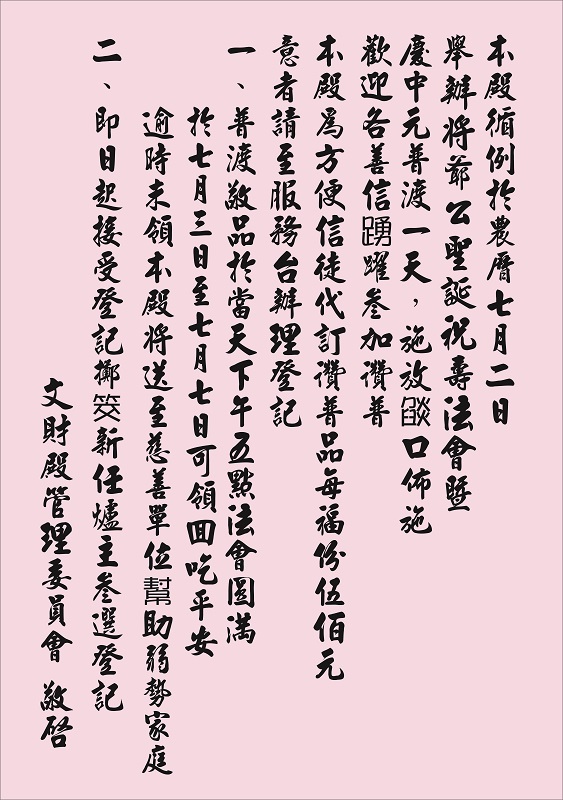 本殿循例於農曆七月二日
舉辦將爺公聖誕祝壽法會暨
慶中元普渡一天，施放燄口佈施
歡迎各善信踴躍參加讚普
本殿為方便信徒代訂讚普品每福份伍佰元
意者請至服務台辦理登記
一、普渡敬品於當天下午五點法會圓滿
於七月三日至七月七日可領回吃平安
逾時未領本殿將送至慈善單位幫助弱勢家庭
二、即日起接受登記擲筊新任爐主參選登記
文財殿管理委員會 敬啓